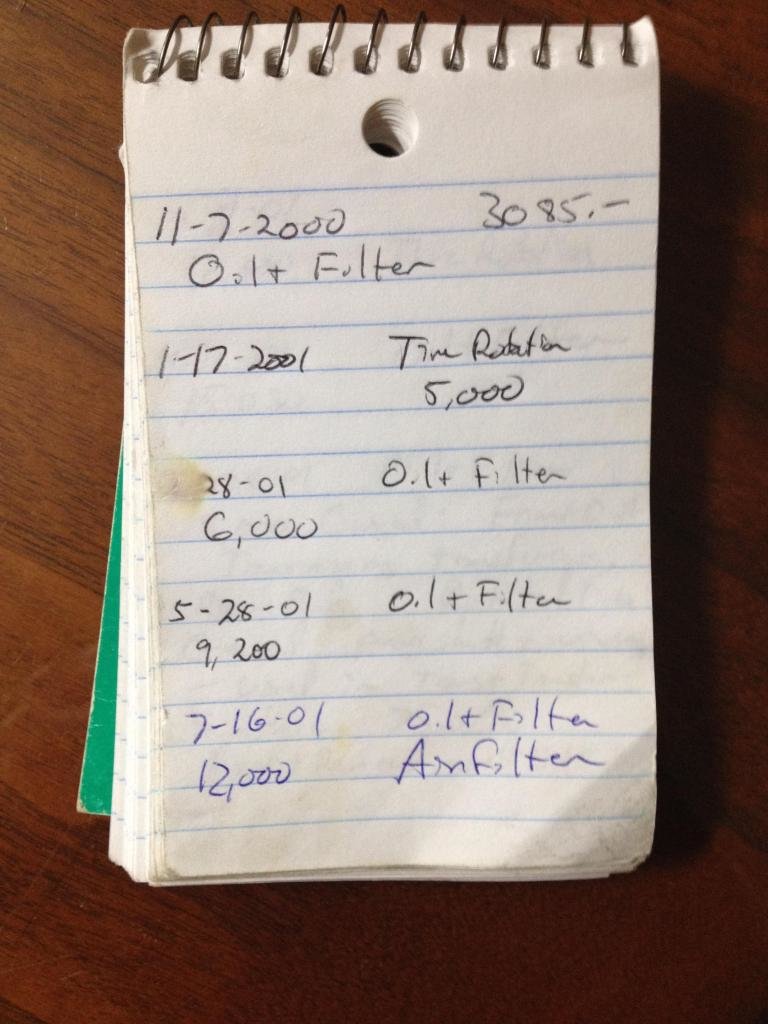 11-7-2000 3085.-
Oil + Filter
1-17-2001 Tire Rotation
5,000
28-01 Oil + Filter
6,000
5-28-01 Oil + Filter
9,200
7-16-01 Oil + Filter
12,000 Air Filter